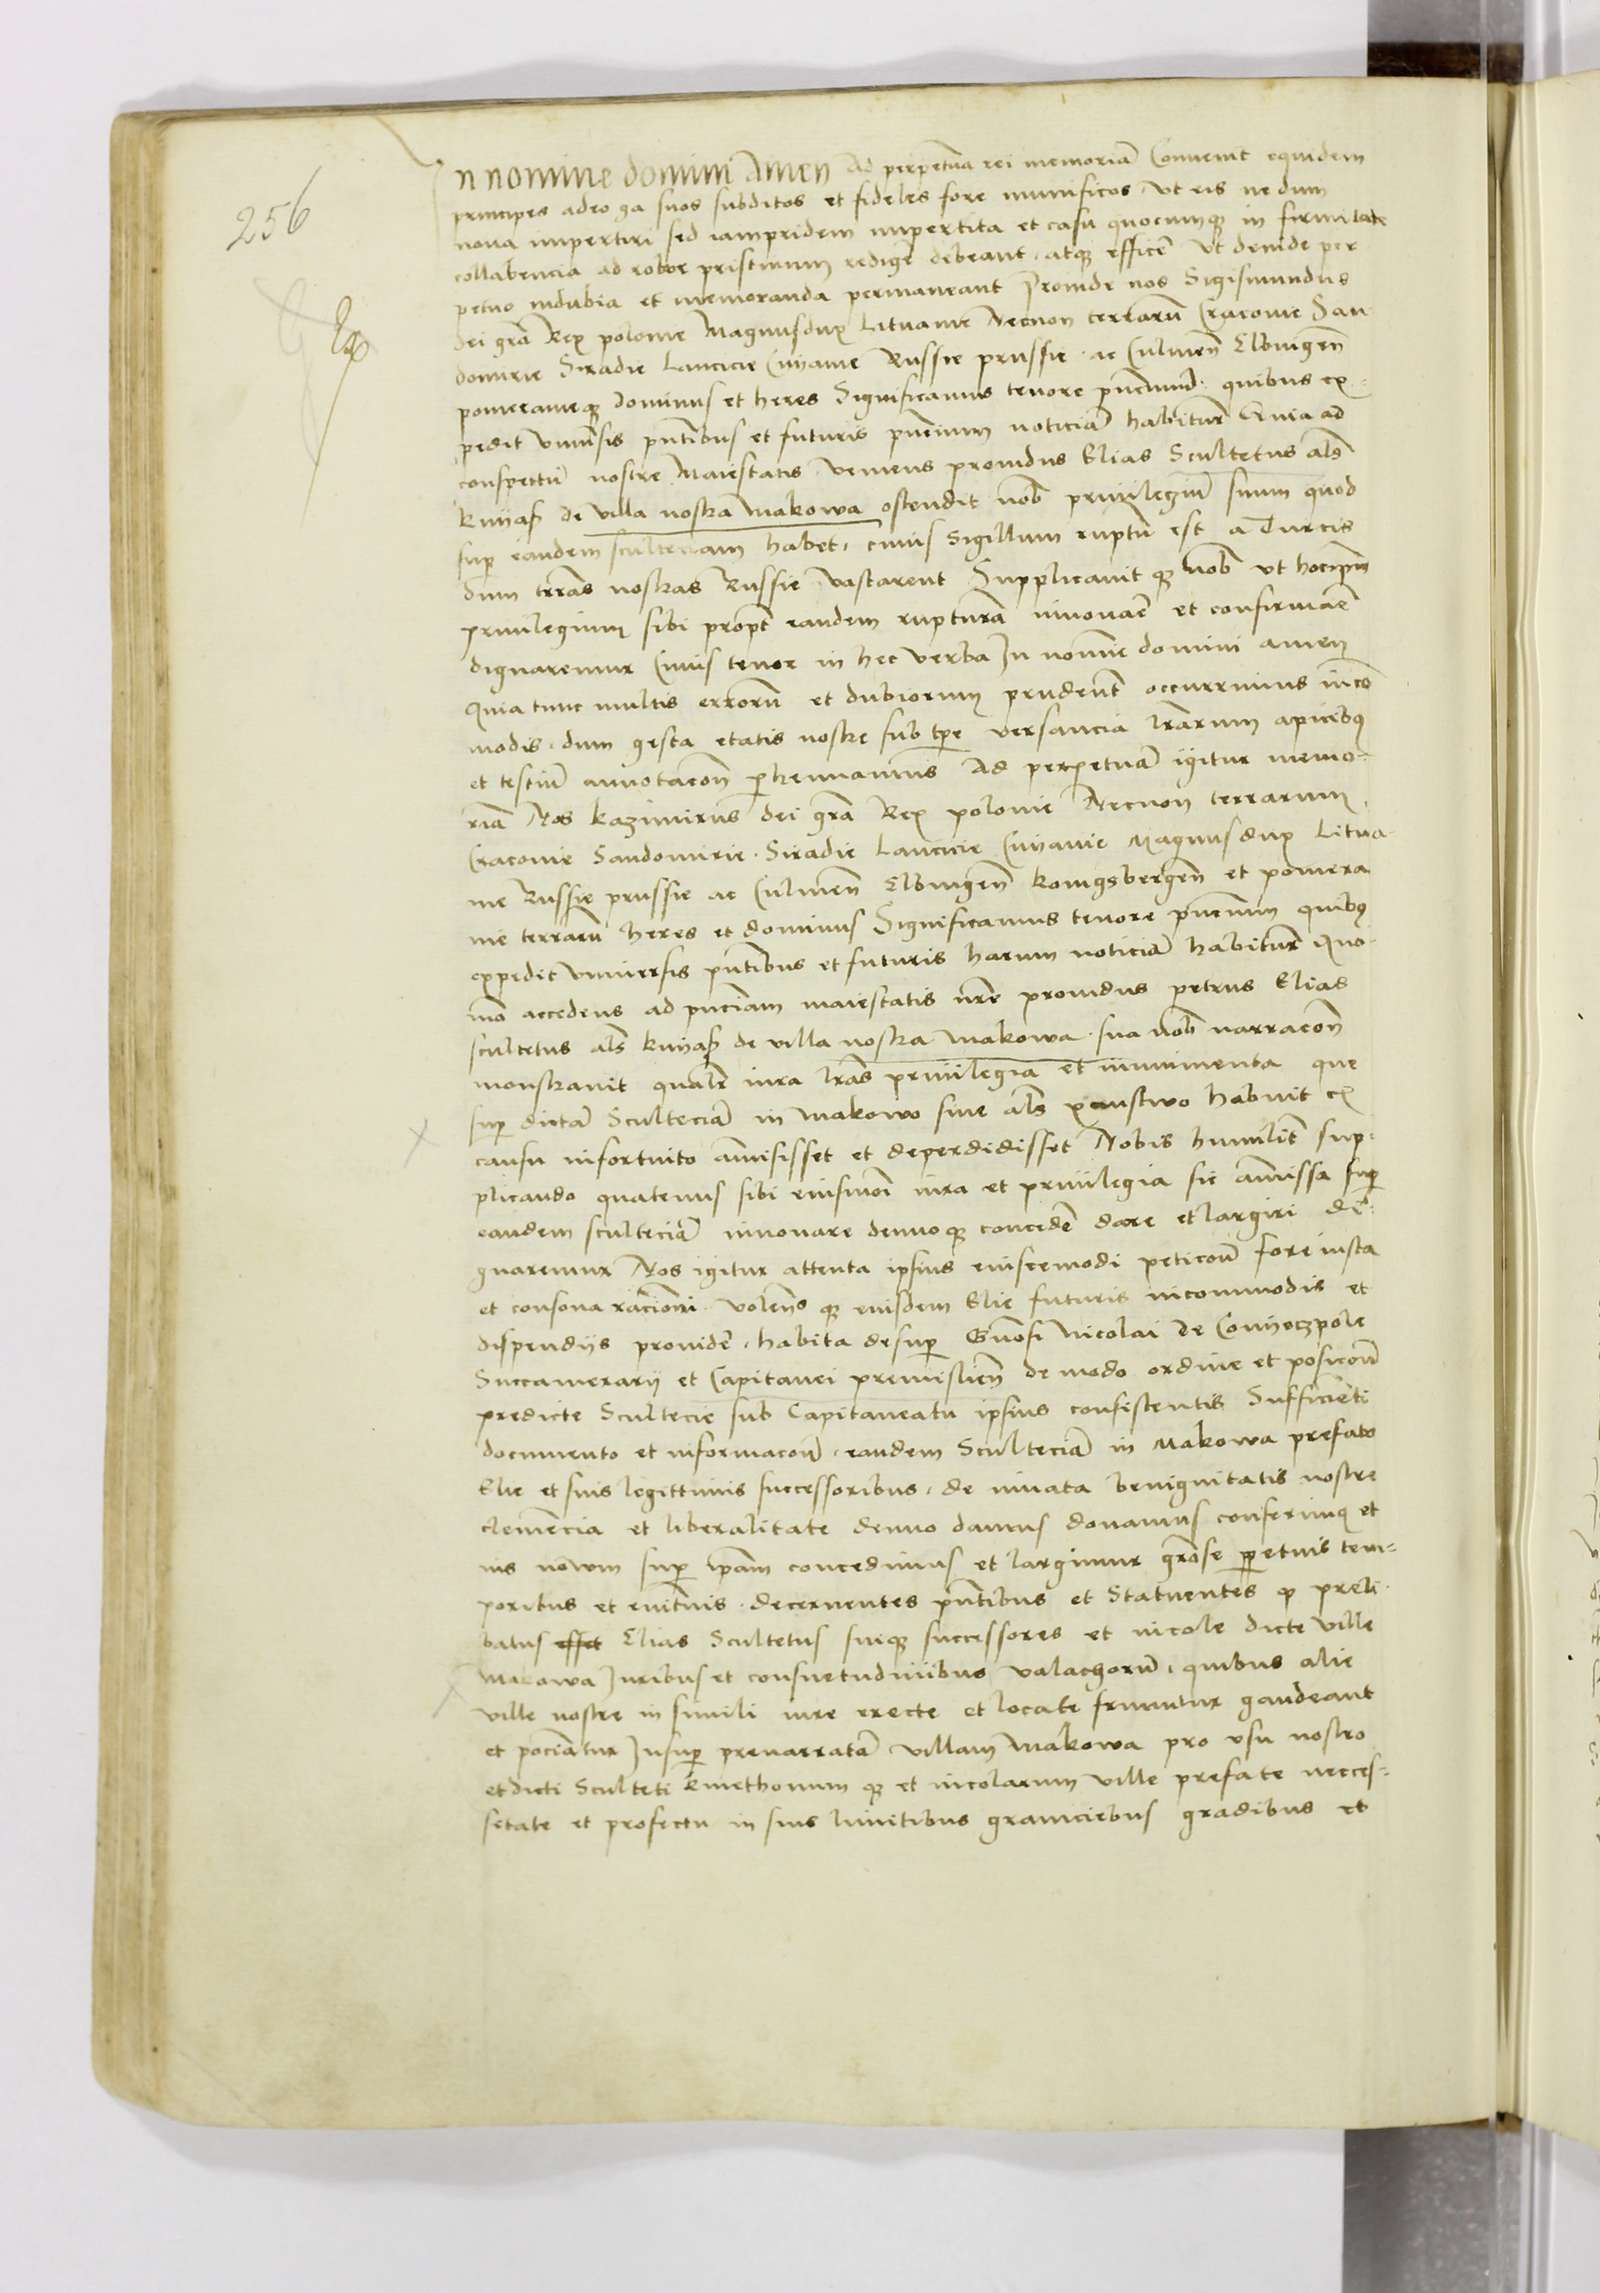 256
In nomine domini Amen Ad perpetua rei memoriã Convenit equidem
principes adeo ga suos subditos et fideles fore munificos. Vt eis ne dum
nova impertiri sed iampridem impertita et casu quocumq; in firmitate
collabencia ad robor pristinum redigẽ debeant. atq; efficẽ Vt deinde per
petuo indubia et memoranda permaneant Proinde nos Sigismundus
dei grã Rex polonie Magnusdux Lituanie Necnon terrarũ Cracovie San
domirie Siradie Lancicie Cuyavie Russie prussie. ac Culmeñ Elbingeñ
pomeranieq; dominus et heres Significamus tenore pñcium. quibus ex-
pedit Vniũsis pñtibus et futuris pñcium noticiã habiturĩ Quia ad
conspectũ nostre Maiestatis veniens providus Elias Scultetus als
knyasz de villa nostra Makowa ostendit nob privilegiũ suum quod
sup eandem scultetiam habet, cuius Sigillum ruptũ est a Turcis
dum terras nostras Russie vastarent Supplicavit q; nob vt hoc ipm
privilegium sibi propt eandem rupturã innovarẽ et confirmarẽ
dignaremur Cuius tenor in hec verba In nomine domini amen
Quia tunc multis errorũ et dubiorum prudent occurrimus inco
modis. dum gesta etatis nostre sub tpe versancia lrarum apicibus
et testiũ annotacoñ phennamus Ad perpetuã igitur memo-
riã Nos kazimirus dei grã Rex polonie Necnon terrarum
Cracovie Sandomirie. Siradie Lancicie Cuyavie Magnusdux Litua-
nie Russie prussie ac Culmeñ Elbingeñ konigsbergeñ et pomera
nie terrarũ heres et dominus Significamus tenore pñcium quibus
expedit Vniversis pñtibus et futuris harum noticiã habiturĩ Quo-
mõ accedens ad pñciam maiestatis nre providus petrus Elias
scultetus als knyasz de villa nostra Makowa. sua nob narracoñ
monstravit qualr iura lras privilegia et munimenta que
sup dictã Sculteciã in Makowo sive als panstwo habuit ex
causu infortuito amisisset et deperdidisset Nobis humilit sup-
plicando quatenus sibi eiusmõi iura et privilegia sic amissa sup
eandem sculteciã innovare denuoq; concedẽ dare et largiri di-
gnaremur Nos igitur attenta ipsius eiuscemodi peticoñ fore iusta
et consona racioni. volens q; eiusdem Elie futuris incommodis et
dispendijs providẽ. habita desup Gñosi Nicolai de Conyeczpole
Succamerarij et Capitanei premislieñ de modo ordine et posicoñ
predicte Scultecie sub Capitaneatu ipsius consistentis Sufficieti
documento et informacoñ. eandem Sculteciã in Makowa prefato
Elie et suis legittimis successoribus. de innata benignitatis nostre
clemẽcia et liberalitate denuo damus donamus conferimus et
ius novum sup ipam concedimus et largimur grõse ppetuis tem-
poribus et evitnis. decernentes pñtibus et Statuentes q preli-
batus esset Elias Scultetus suiq; successores et incole dicte ville
Makowa Iuribus et consuetudinibus valachorũ. quibus alie
ville nostre in simili iure erecte et locate fruuntur gaudeant
et pociantur Insup prenarratã villam Makowa pro vsu nostro
et dicti Sculteti kmethonum q; et incolarum ville prefate necces-
sitate et profectu in suis limitibus graniciebus gradibus et